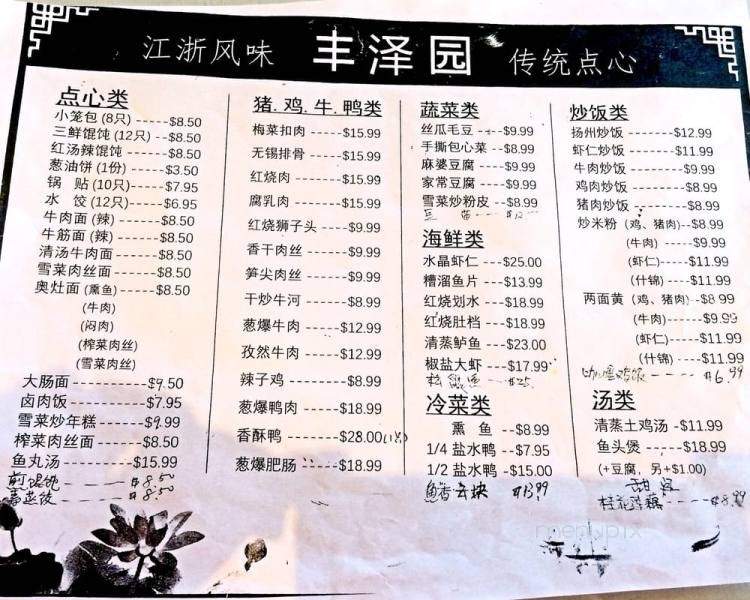 江浙风味 丰泽园 传统点心
点心类
小笼包 (8只) -----$8.50
三鲜馄饨 (12只) --$8.50
红汤辣馄饨 -----$8.50
葱油饼 (1份) -----$3.50
锅 贴 (10只)-----$7.95
水 饺 (12只)-----$6.95
牛肉面 (辣) ------$8.50
牛筋面 (辣) ------$8.50
清汤牛肉面 -----$8.50
雪菜肉丝面 -----$8.50
奥灶面 (熏鱼) -----$8.50
(牛肉)
(闷肉)
(榨菜肉丝)
(雪菜肉丝)
大肠面 ----------$9.50
卤肉饭 ----------$7.95
雪菜炒年糕 ------$9.99
榨菜肉丝面 ------$8.50
鱼丸汤 --------$15.99
煎馄饨 ------ $8.50
蒸饺 ------ $8.50
猪. 鸡. 牛. 鸭类
梅菜扣肉 -----$15.99
无锡排骨 -----$15.99
红烧肉 ------$15.99
腐乳肉 ------$15.99
红烧狮子头 ----$9.99
香干肉丝 ------$9.99
笋尖肉丝 ------$9.99
干炒牛河 ------$8.99
葱爆牛肉 -----$12.99
孜然牛肉 -----$12.99
辣子鸡 -------$8.99
葱爆鸭肉 -----$18.99
香酥鸭 ------$28.00
葱爆肥肠 -----$18.99
蔬菜类
丝瓜毛豆 ----$9.99
手撕包心菜 --$8.99
麻婆豆腐 ----$9.99
家常豆腐 ----$9.99
雪菜炒粉皮 --$8.99
海鲜类
水晶虾仁 ---$25.00
糟溜鱼片 ---$13.99
红烧划水 ---$18.99
红烧肚档 ---$18.99
清蒸鲈鱼 ---$23.00
椒盐大虾 ---$17.99
冷菜类
熏 鱼 --$8.99
1/4 盐水鸭 --$7.95
1/2 盐水鸭 -$15.00
$13.99
炒饭类
扬州炒饭 -------$12.99
虾仁炒饭 -------$11.99
牛肉炒饭 --------$9.99
鸡肉炒饭 --------$8.99
猪肉炒饭 --------$8.99
炒米粉 (鸡、猪肉)--$8.99
(牛肉) ----$9.99
(虾仁)-----$11.99
(什锦) ----$11.99
两面黄 (鸡、猪肉) --$8.99
(牛肉)-----$9.99
(虾仁)-----$11.99
(什锦) ----$11.99
咖喱鸡饭 ---- $6.99
汤类
清蒸土鸡汤 -$11.99
鱼头煲 -----$18.99
(+豆腐, 另+$1.00)
甜
桂花糖藕 ---- $8.99
menupix